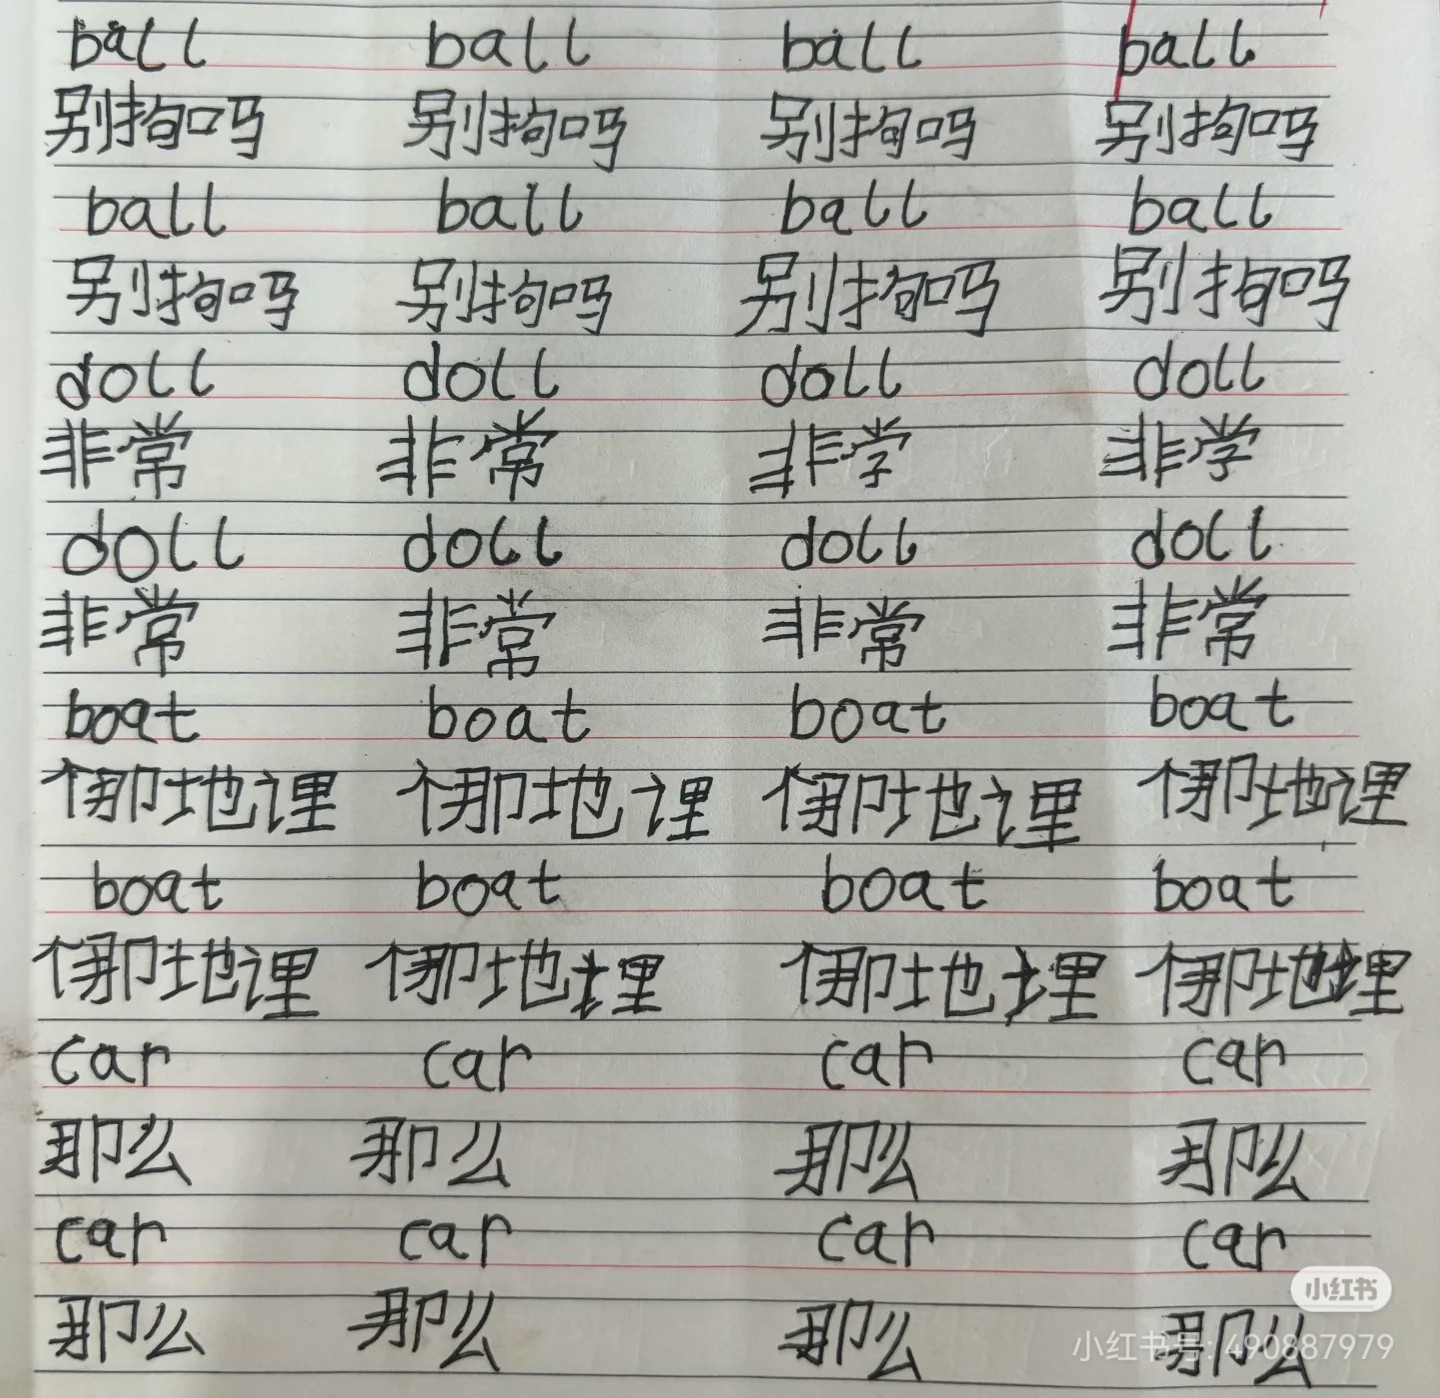 ball ball ball ball
别拘吗 别拘吗 别拘吗 别拘吗
ball ball ball ball
别拘吗 别拘吗 别拘吗 别拘吗
doll doll doll doll
非常 非常 非学 非学
doll doll doll doll
非常 非常 非常 非常
boat boat boat boat
地 地 地 地
boat boat boat boat
地 地埋 地埋 地埋
car car car car
那么 那么 那么 那么
car car car car
那么 那么 那么 那么
小红书
小红书号: 490887979